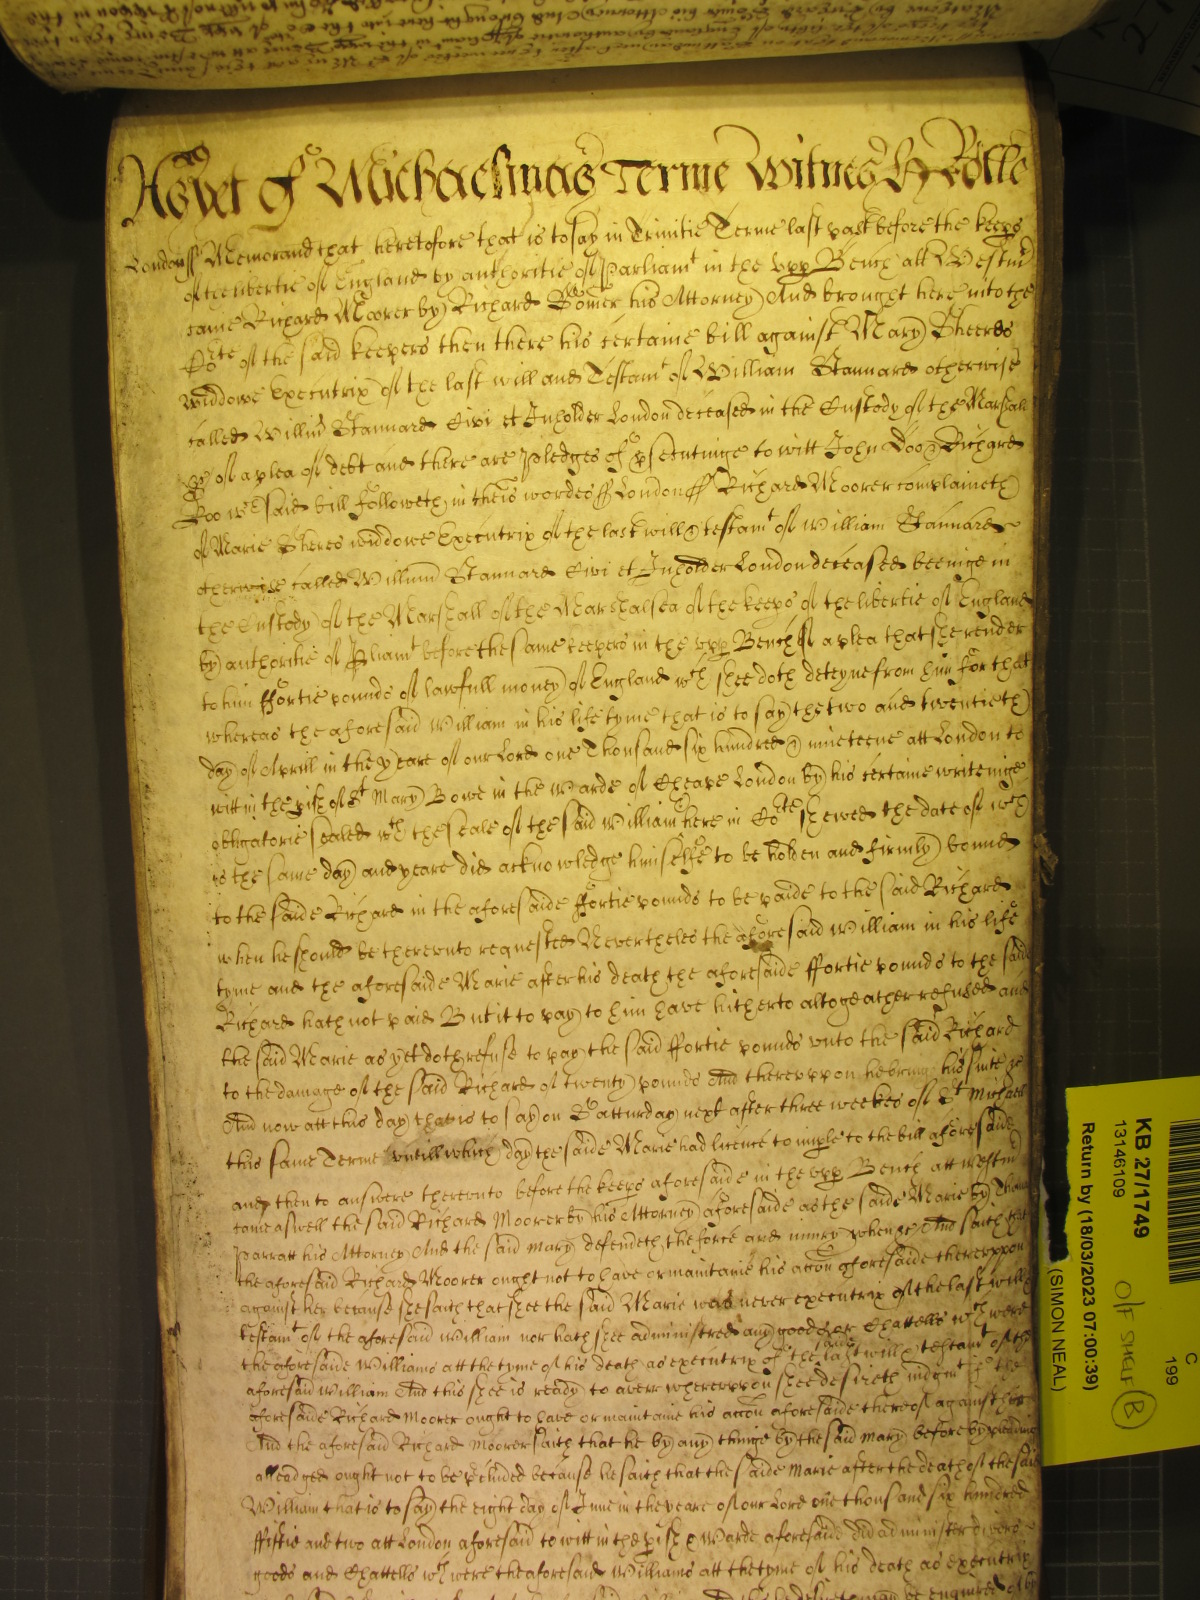 Michaelmas Terme Witnes H Rolle
London ss Memorand that heretofore that is to say in Trinitie Terme last past before the keeps
of the libertie of England by authoritie of Parliamt in the upp Bench att Westm
came Richard Moorer by Richard his Attorney And brought here into the
Cote of the said keepers then there his certaine bill against Mary Sheeres
widdowe Executrix of the last will and Testamt of William Stannard otherwise
called Willm Stannard Civi et Inholder London deceased in the Custody of the Marshall
&c of a plea of debt and there are pledges of psecutinge to witt John Doo & Richard
Roo wch said bill followeth in theis wordes ss London ss Richard Moorer complaineth
of Marie Sheres widdowe Executrix of the last will & testamt of William Stannard
otherwise called Willm Stannard Civi et Inholder London deceased beeinge in
the Custody of the Marshall of the Marshalsea of the keeps of the libertie of England
by authoritie of Pliamt before the same keepers in the upp Bench of a plea that she render
to him ffortie pounds of lawfull money of England wch shee doth deteyne from him For that
whereas the aforesaid William in his life tyme that is to say the two and twentieth
day of Aprill in the yeare of our Lord one Thousand six hundred & nineteene att London to
witt in the pish of St Mary Bowe in the Warde of Cheape London by his certaine writeinge
obligatorie sealed wth the seale of the said William & here in Cote shewed the date of wch
is the same day and yeare did acknowledge himselfe to be holden and firmly bound
to the saide Richard in the aforesaide ffortie pounds to be paide to the said Richard
when he should be thereunto requested Neverthelesse the aforesaid William in his life
tyme and the aforesaide Marie after his death the aforesaide ffortie pounds to the said
Richard hath not paid But it to pay to him have hitherto altogeather refused and
the said Marie as yet doth refuse to pay the said ffortie pounds unto the said Richard
to the damage of the said Richard of twenty pounds And thereuppon he brings his suite &c
And now att this day that is to say on Satturday next after three weekes of St Michaell
this same Terme untill which day the saide Marie had licence to imple to the bill aforesaide
and then to answere thereunto before the keeps aforesaide in the upp Bench att Westm
came aswell the said Richard Moorer by his Attorney aforesaide as the saide Marie by
Parratt his Attorney And the said Mary defendeth the force and iniury when &c And saith that
the aforesaid Richard Moorer ought not to have or maintaine his accon aforesaide thereuppon
against her because she saith that shee the said Marie was never executrix of the last will &
testamt of the aforesaid William nor hath shee administred any goods or Chattells wch were
the aforesaide Williams att the tyme of his death as executrix of the last will & testamt of the
aforesaid William And this shee is ready to averr whereuppon shee desireth iudgmt if the
aforesaide Richard Moorer ought to have or maintaine his accon aforesaide thereof against her
And the aforesaid Richard Moorer saith that he by any thinge by the said Mary before by pleadinge
alleadged ought not to be pcluded because he saith that the saide Marie after the death of the said
William that is to say the eight day of June in the yeare of our Lord one thousand six hundred
ffiftie and two att London aforesaid to witt in the pish & Warde aforesaide did administer divers
goods and Chattells wch were the aforesaid Williams att the tyme of his death as executrix
KB 27/1749
13146109
Return by (18/03/2023 07:00:39)
(SIMON NEAL)
O/F SHELF B
C
199